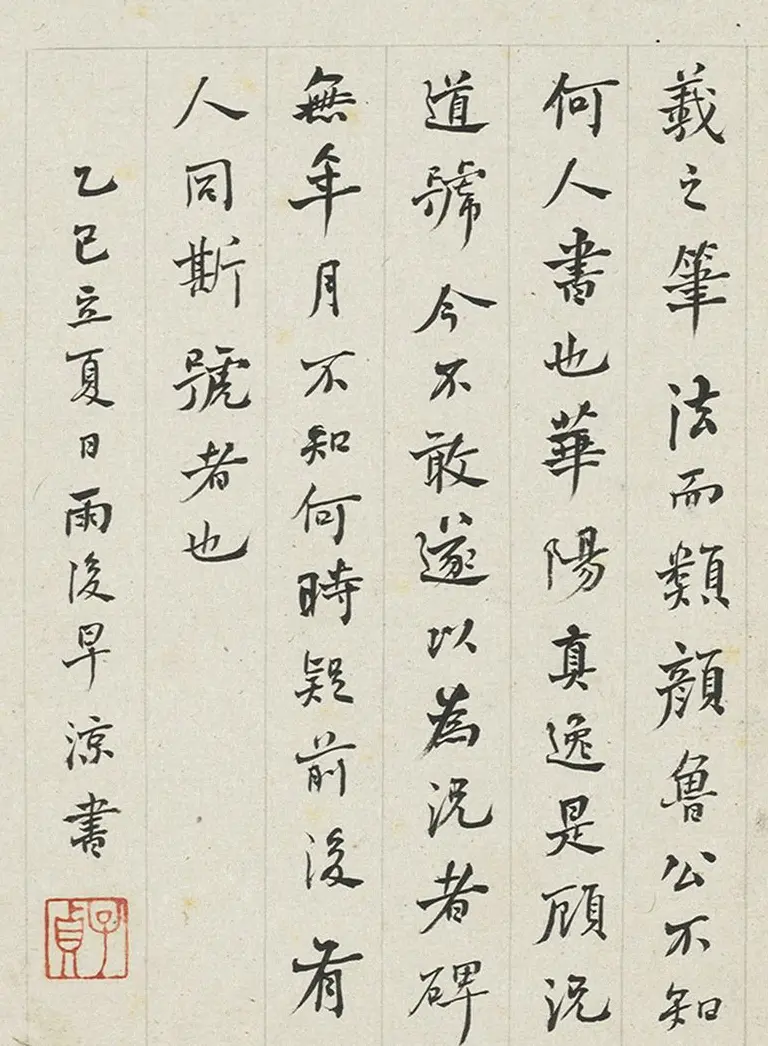 羲之筆法而類顔魯公不知
何人書也華陽真逸是顧況
道號今不敢遂以為況者碑
無年月不知何時疑前後有
人同斯號者也
乙巳立夏日雨後早涼書
子貞